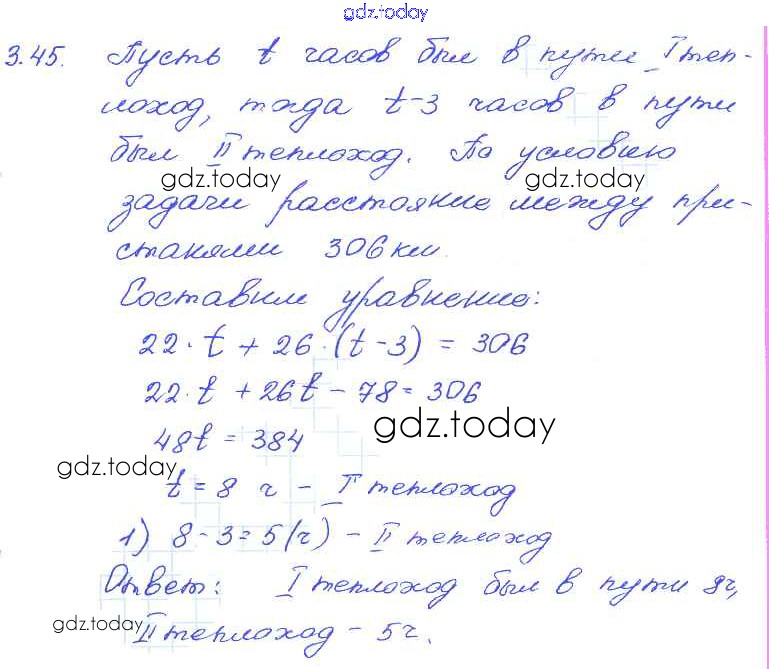 gdz.today
3.45. Пусть t часов был в пути I теп-
лоход, тогда t-3 часов в пути
был II теплоход. По условию
gdz.today gdz.today
задачи расстояние между при-
станями 306 км.
Составим уравнение:
22·t + 26·(t-3) = 306
22·t + 26t - 78 = 306
gdz.today
48t = 384
gdz.today
t = 8 ч - I теплоход
1) 8 - 3 = 5(ч) - II теплоход
Ответ: I теплоход был в пути 8ч,
gdz.today
II теплоход - 5ч.